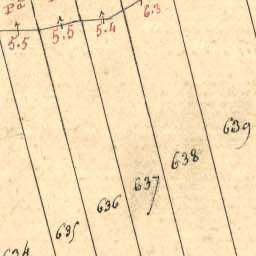 Pã
5.5
5.5
5.4
6.3
639
638
637
636
635
634